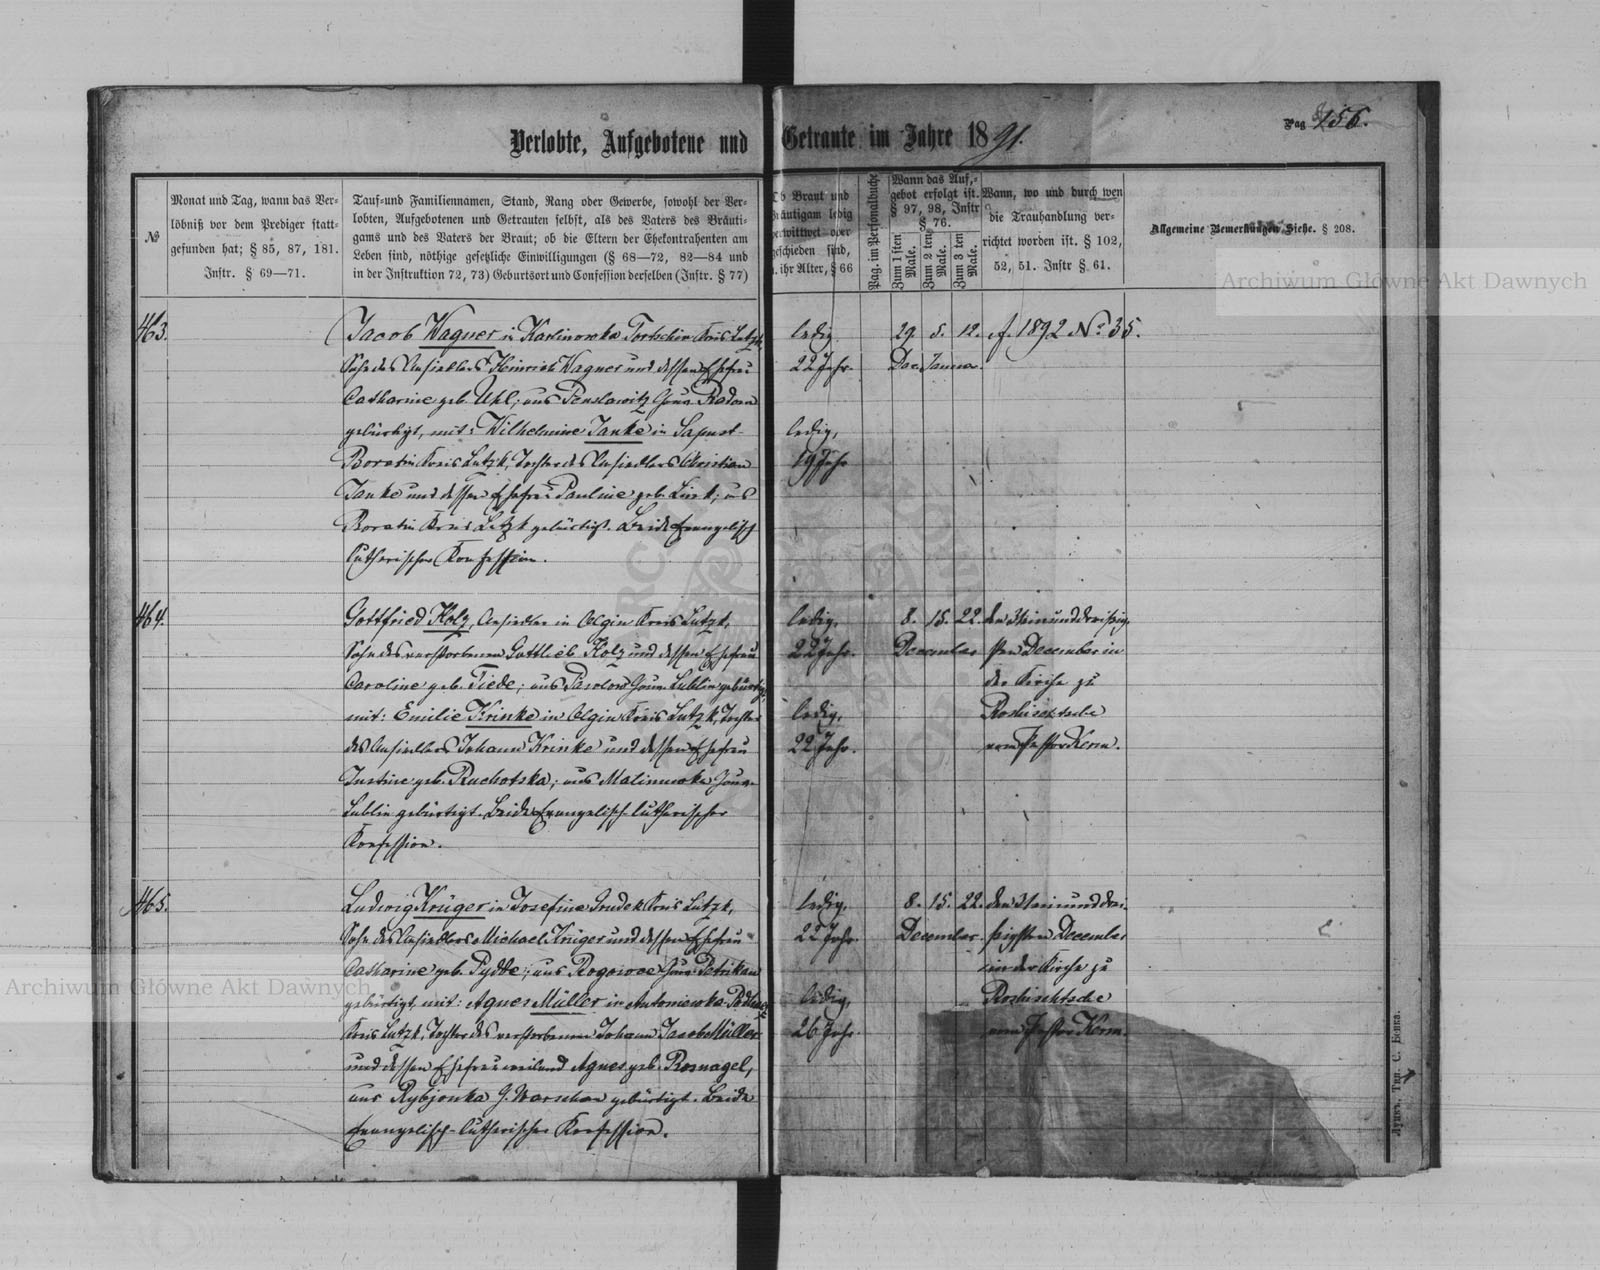 Verlobte, Aufgebotene und Getraute im Jahre 1891.
Pag 156.
№
Monat und Tag, wann das Ver-
löbniß vor dem Prediger statt-
gefunden hat; § 85, 87, 181.
Instr. § 69—71.
Tauf-und Familiennamen, Stand, Rang oder Gewerbe, sowohl der Ver-
lobten, Aufgebotenen und Getrauten selbst, als des Vaters des Bräuti-
gams und des Vaters der Braut; ob die Eltern der Ehekontrahenten am
Leben sind, nöthige gesetzliche Einwilligungen (§ 68—72, 82—84 und
in der Instruktion 72, 73) Geburtsort und Confession derselben (Instr. § 77)
Ob Braut und
Bräutigam ledig
verwittwet oder
geschieden sind,
u. ihr Alter, § 66
Pag. im Personalbuche
Wann das Auf-
gebot erfolgt ist.
§ 97, 98, Instr
§ 76.
Zum 1 sten Male.
Zum 2 ten Male.
Zum 3 ten Male.
Wann, wo und durch wen
die Trauhandlung ver-
richtet worden ist. § 102,
52, 51. Instr § 61.
Allgemeine Bemerkungen Siehe. § 208.
Archiwum Główne Akt Dawnych
463.
Jacob Wagner in Karlinowka Kreis Lutzk,
Sohn des Ansiedlers Heinrich Wagner und dessen Ehefrau
Catharine geb. Uhl; aus Gouv. Radom
gebürtigt, mit: Wilhelmine Janke in
Boratin Kreis Lutzk, Tochter des Ansiedlers Christian
Janke und dessen Ehefrau Pauline geb. aus
Boratin Kreis Lutzk gebürtigt. Beide Evangelisch
lutherischer Konfession.
ledig.
22 Jahr.
ledig,
19 Jahr
29. 5. 12.
Dec. Januar.
cf. 1892 No. 35.
464.
Gottfried Kolz, Ansiedler in Olgin Kreis Lutzk,
Sohn des verstorbenen Gottlieb Kolz und dessen Ehefrau
Caroline geb. Tiede; aus Gouv. Lublin gebürtigt,
mit: Emilie Krinke in Olgin Kreis Lutzk, Tochter
des Ansiedlers Johann Krinke und dessen Ehefrau
Justine geb. Ruchotzka; aus Malinowka Gouv.
Lublin gebürtigt. Beide Evangelisch-lutherischer
Konfession.
ledig,
22 Jahr.
ledig,
22 Jahr.
8. 15. 22.
December
den Ein und dreißig-
sten December in
der Kirche zu
Roshischtsche
vom Pastor Kern.
465.
Ludwig Krüger in Josefine Kreis Lutzk,
Sohn des Ansiedlers Michael Krüger und dessen Ehefrau
Catharine geb. Pydde; aus Rogowoe Gouv. Petrikau
gebürtigt, mit: Agnes Müller in Antoniewka
Kreis Lutzk, Tochter des verstorbenen Johann Jacob Müller
und dessen Ehefrau weiland Agnes geb. Rosnagel,
aus Rybjonka G. Warschau gebürtigt. Beide
Evangelisch-lutherischer Konfession.
ledig.
22 Jahr.
ledig,
26 Jahr.
8. 15. 22.
December
den Ein und drei-
ßigsten December
in der Kirche zu
Roshischtsche
vom Pastor Kern.
Archiwum Główne Akt Dawnych
Луцкъ, Тип. С. Бенка.